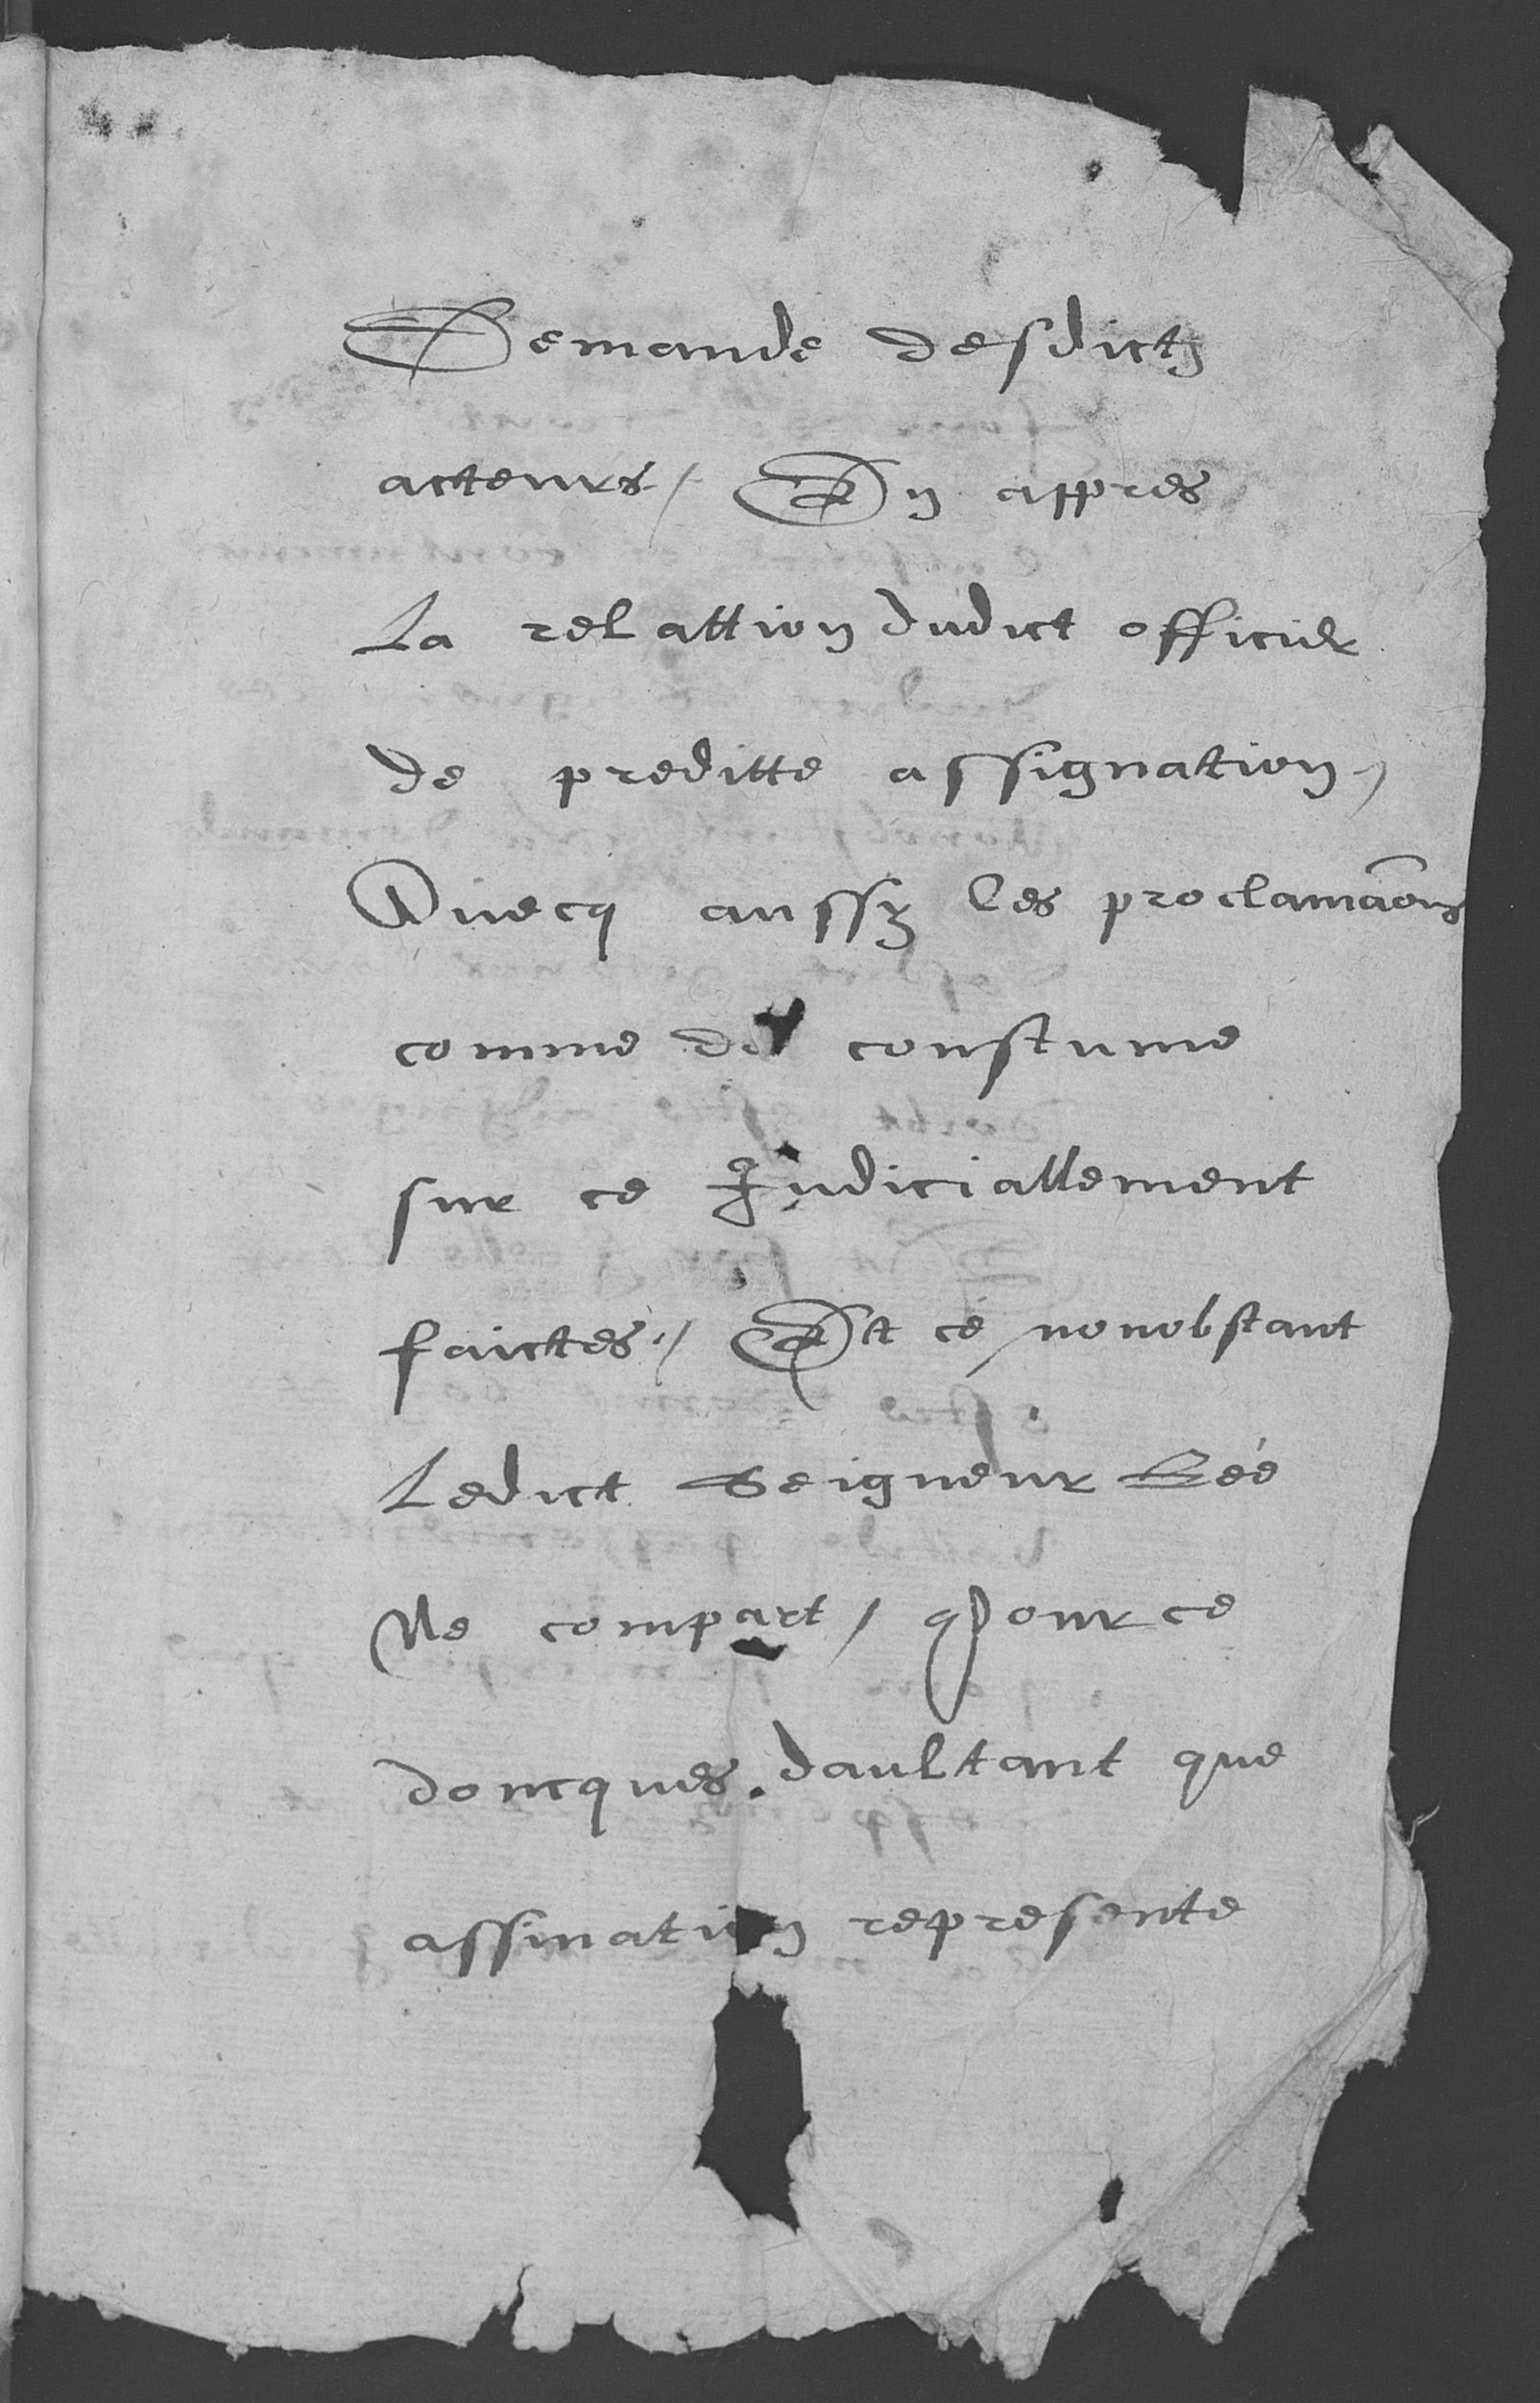 Demande desdictz
acteurs / En appres
La relattion dudict officier
de preditte assignation,
Auecq aussy les proclamãons
comme de coustume
sur ce Judiciallement
faictes, / Et ce nonobstant
Ledict Seigneur Rée
Ne compart / pour ce
doncques. daultant que
assination represente